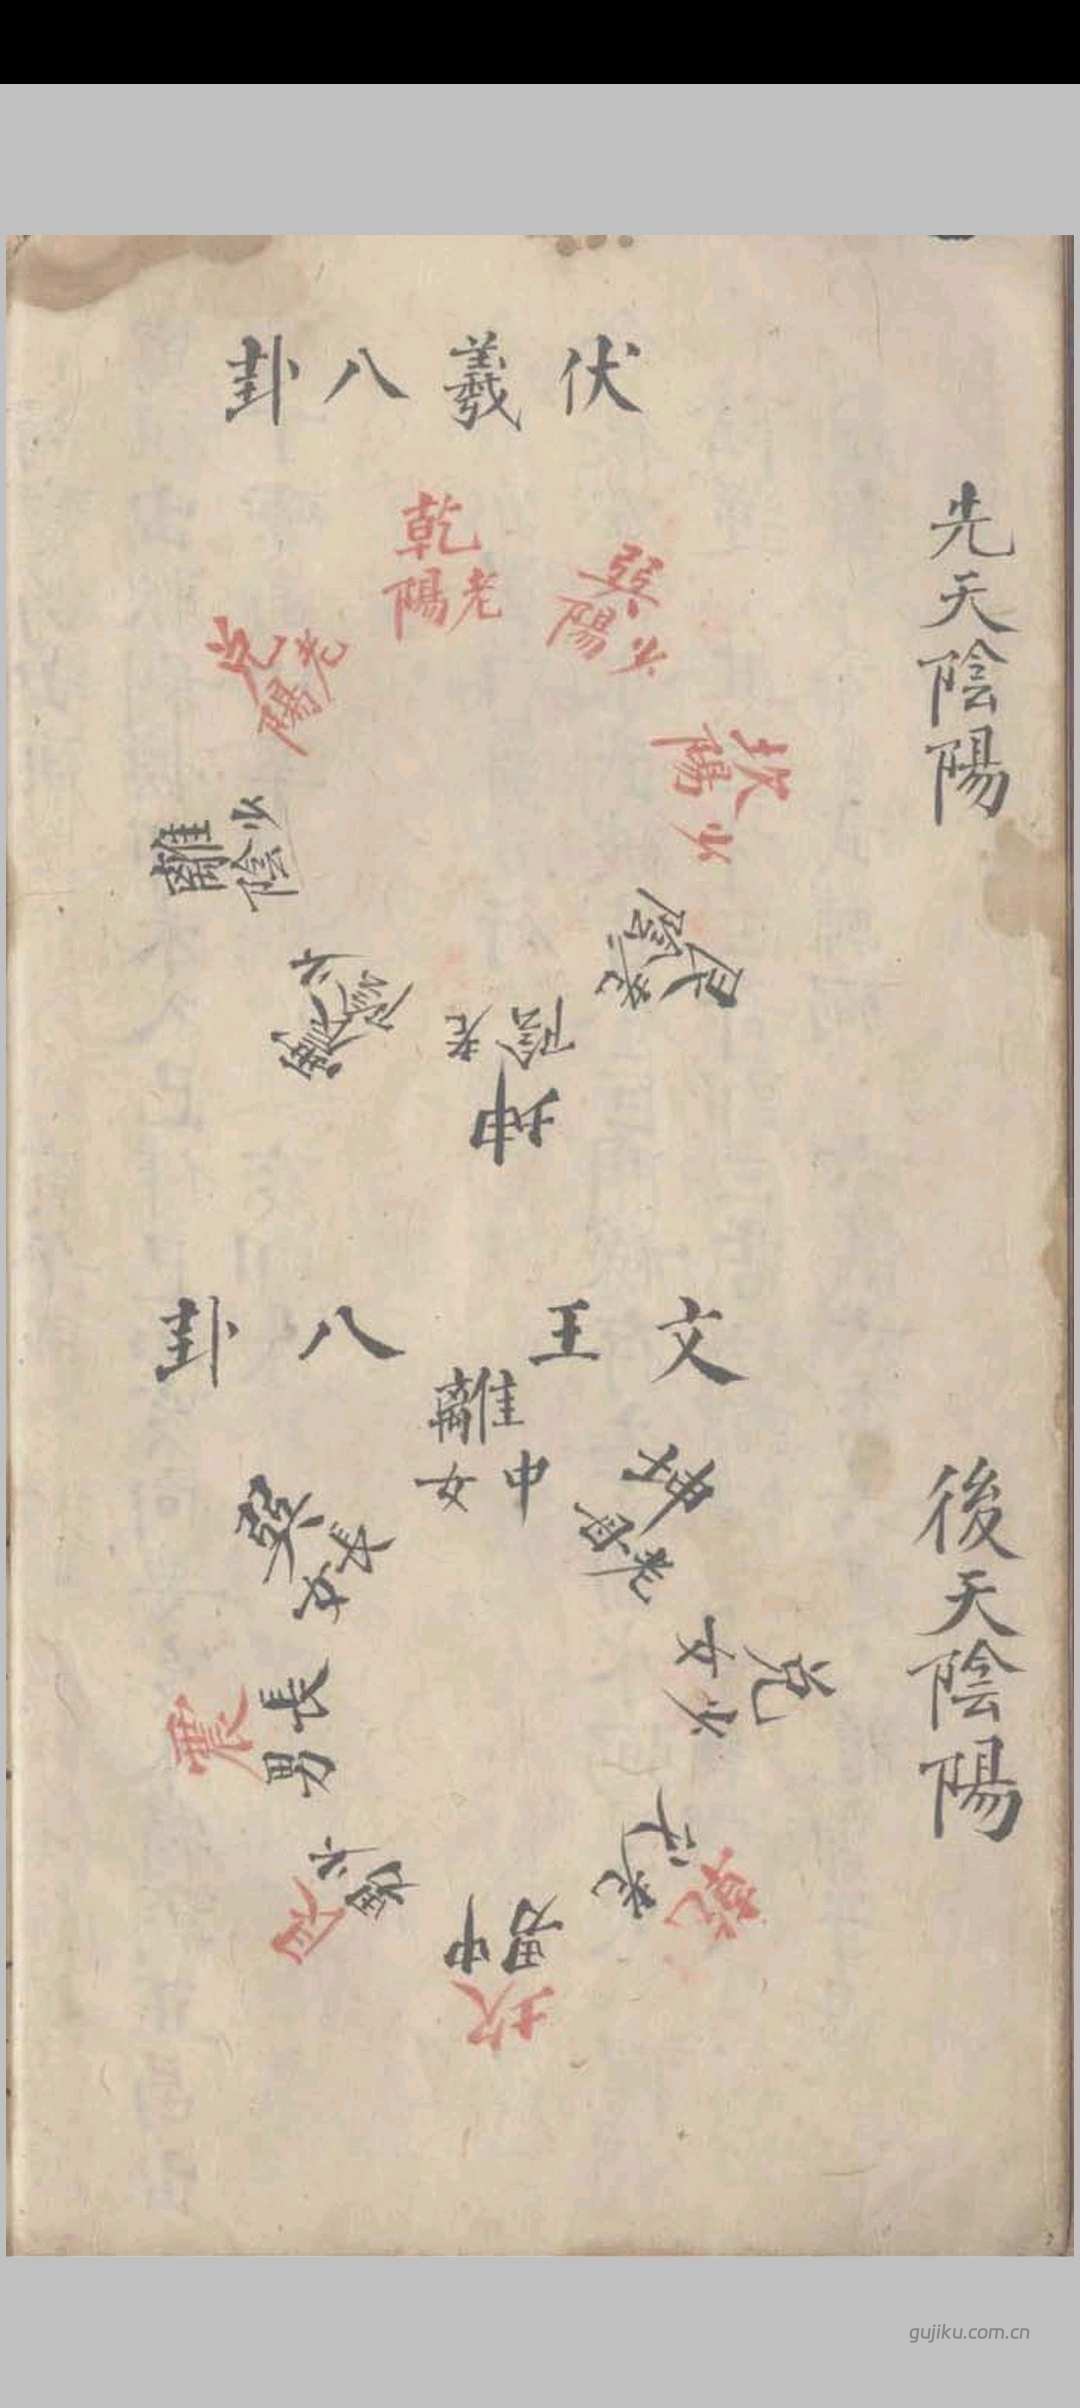 先天陰陽
伏羲八卦
乾老陽
巽少陽
坎少陽
艮老陰
坤老陰
震少陰
離少陰
兌老陽
後天陰陽
文王八卦
離中女
坤老母
兌少女
乾老
坎中男
艮少男
震長男
巽長女
gujiku.com.cn